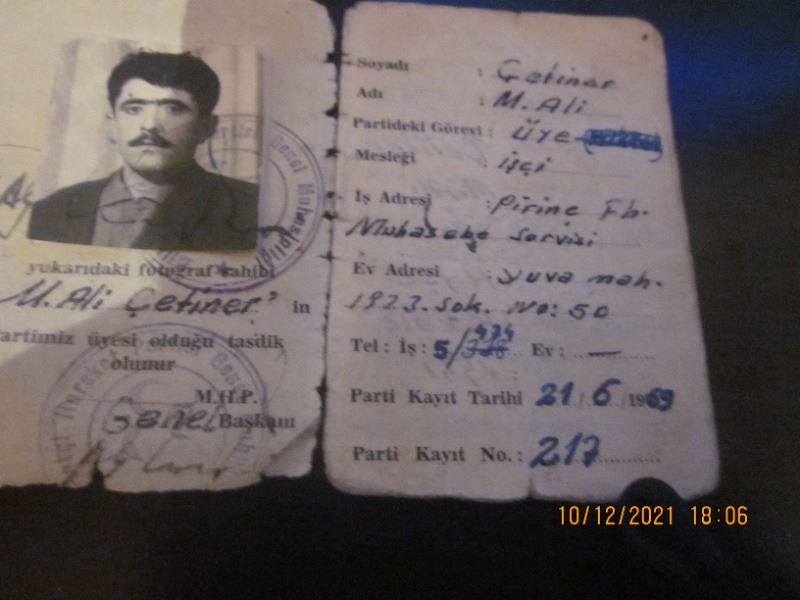 yukarıdaki fotoğraf sahibi
M. Ali Çetiner' in
Partimiz üyesi olduğu tasdik
olunur
M.H.P.
Genel Başkanı
Soyadı : Çetiner
Adı : M. Ali
Partideki Görevi : Üye
Mesleği : işçi
İş Adresi : Pirine Fb.
Muhasebe Servisi
Ev Adresi : Yuva mah.
1923. Sok. No: 50
Tel : İş : 5/474 Ev : —
Parti Kayıt Tarihi 21 / 6 / 1969
Parti Kayıt No. : 217
10/12/2021 18:06